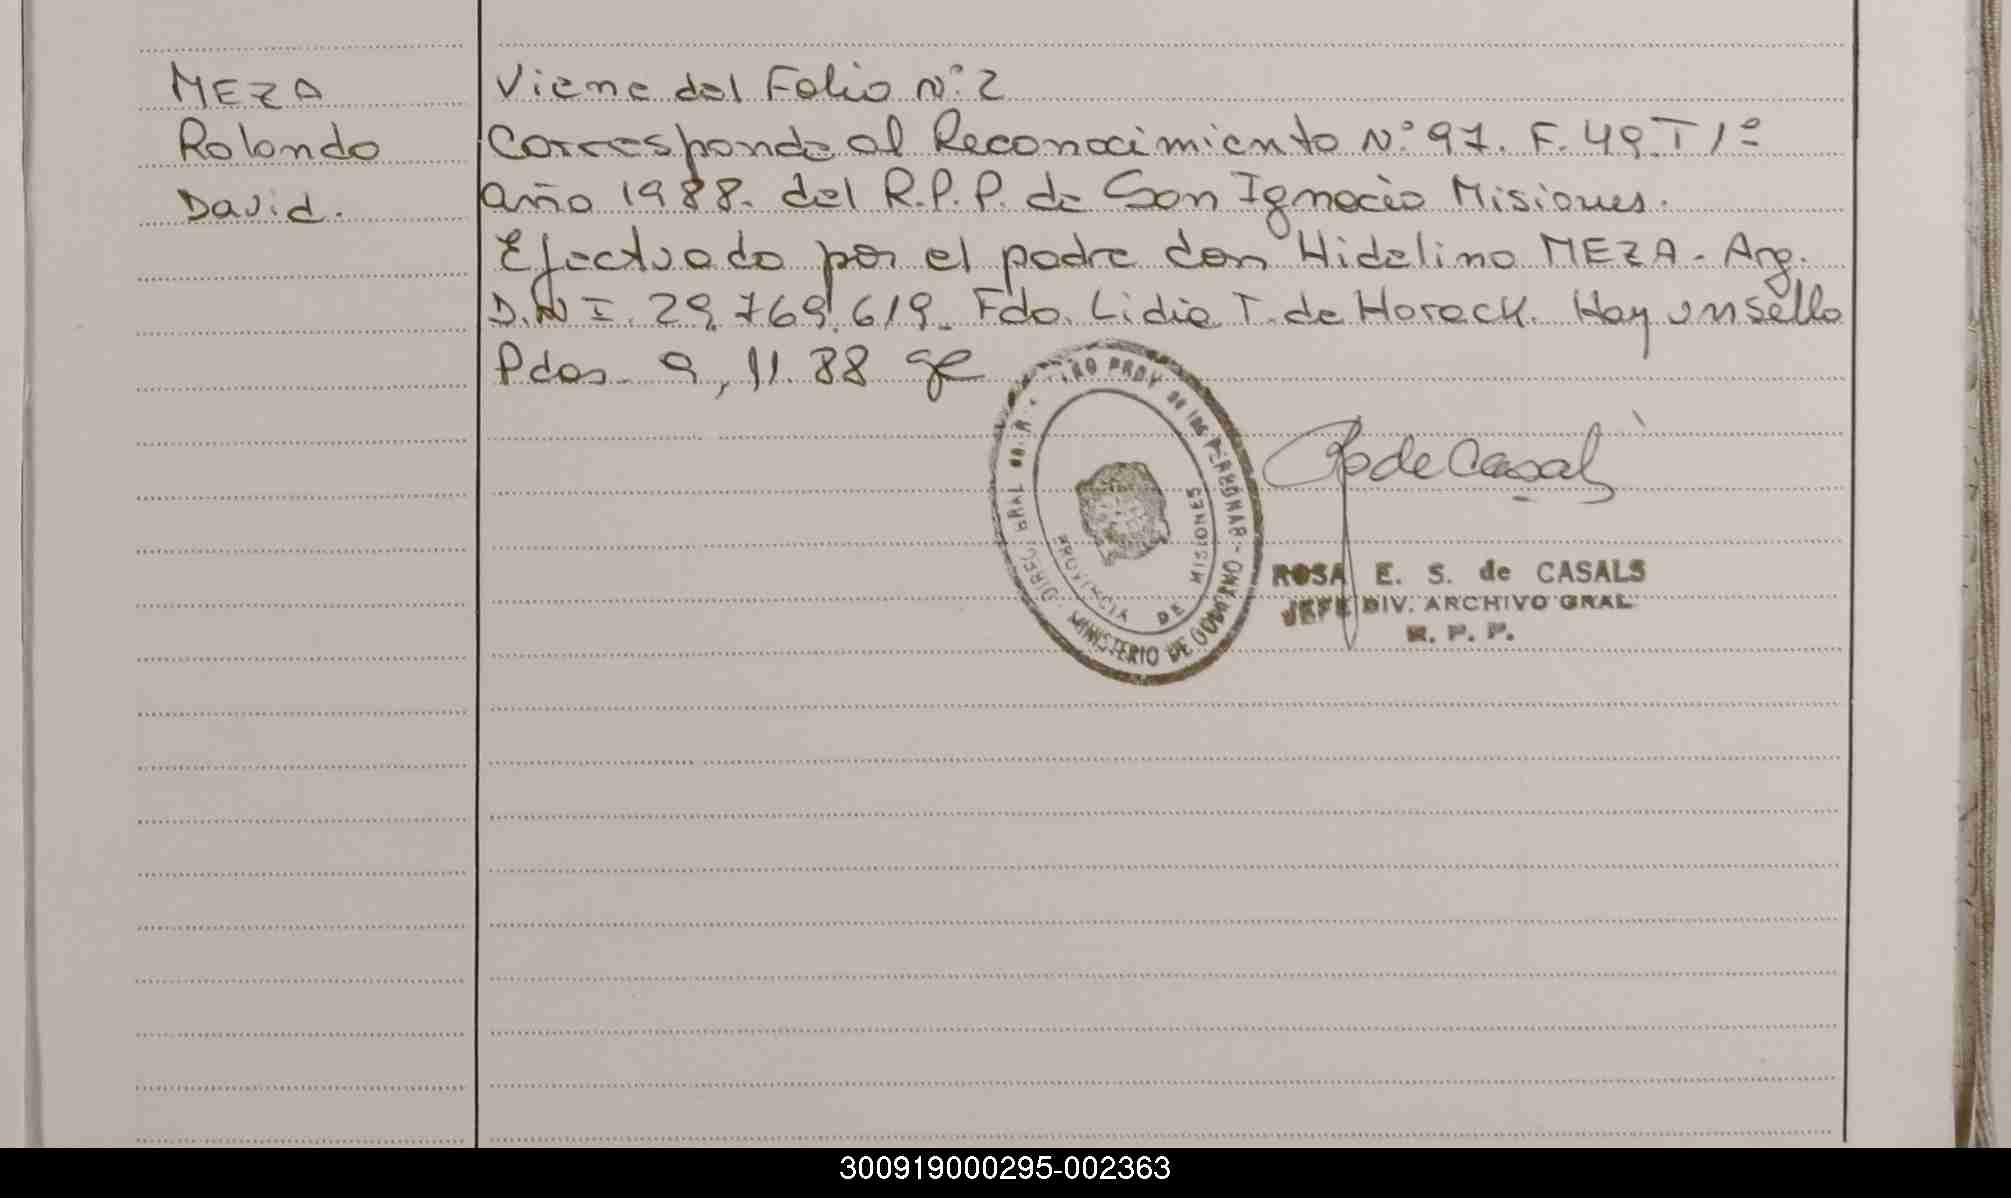 MEZA
Rolando
David.
Viene del Folio N° 2
Corresponde al Reconocimiento N° 97. F. 49. T 1º
año 1988. del R.P.P. de San Ignacio Misiones.
Efectuado por el padre don Hidelino MEZA - Arg.
D.N.I. 29.769.619. Fdo. Lidia T. de Horack. Hay un sello
Pdas. 9, 11. 88
DIREC. GRAL DE PROV DE LAS PERSONAS - MINISTERIO DE GOBIERNO
PROVINCIA DE MISIONES
de Casals
ROSA E. S. de CASALS
JEFE DIV. ARCHIVO GRAL
R. P. P.
300919000295-002363